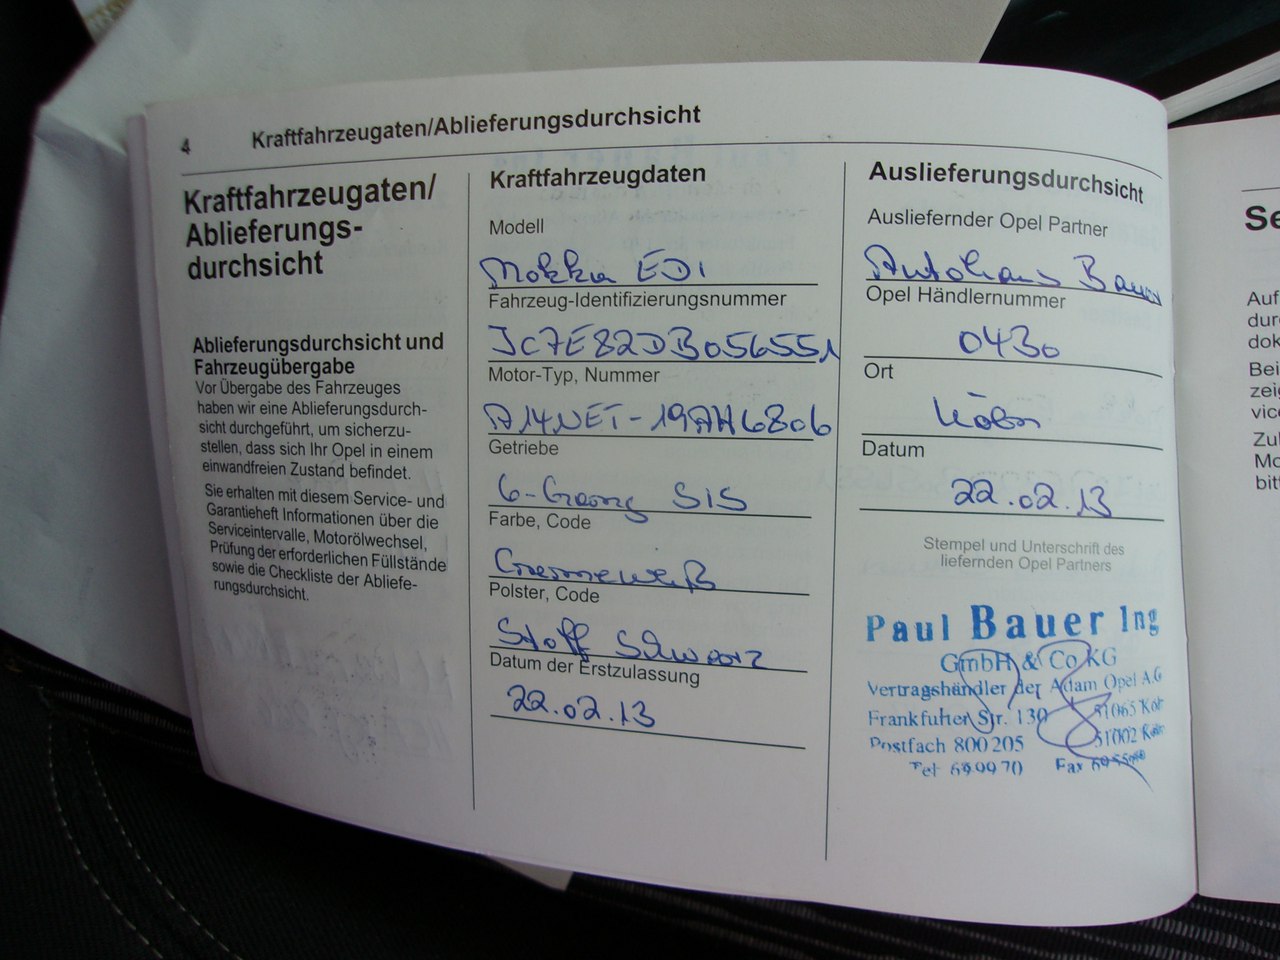 4
Kraftfahrzeugaten/Ablieferungsdurchsicht
Kraftfahrzeugaten/
Ablieferungs-
durchsicht
Ablieferungsdurchsicht und
Fahrzeugübergabe
Vor Übergabe des Fahrzeuges
haben wir eine Ablieferungsdurch-
sicht durchgeführt, um sicherzu-
stellen, dass sich Ihr Opel in einem
einwandfreien Zustand befindet.
Sie erhalten mit diesem Service- und
Garantieheft Informationen über die
Serviceintervalle, Motorölwechsel,
Prüfung der erforderlichen Füllstände
sowie die Checkliste der Abliefe-
rungsdurchsicht.
Kraftfahrzeugdaten
Modell
Mokka EDI
Fahrzeug-Identifizierungsnummer
JC7E82DB056551
Motor-Typ, Nummer
A14NET-19AH6806
Getriebe
6-Gang SIS
Farbe, Code
Polster, Code
Stoff Schwarz
Datum der Erstzulassung
22.02.13
Auslieferungsdurchsicht
Ausliefernder Opel Partner
Autohaus Bauer
Opel Händlernummer
0430
Ort
Köln
Datum
22.02.13
Stempel und Unterschrift des
liefernden Opel Partners
Paul Bauer Ing
GmbH & Co KG
Vertragshändler der Adam Opel AG
Frankfurter Str. 130 51065 Köln
Postfach 800205 51002 Köln
Tel 699970 Fax
Se
Auf
dur
dok
Bei
zeig
vice
Zul
Mo
bitt